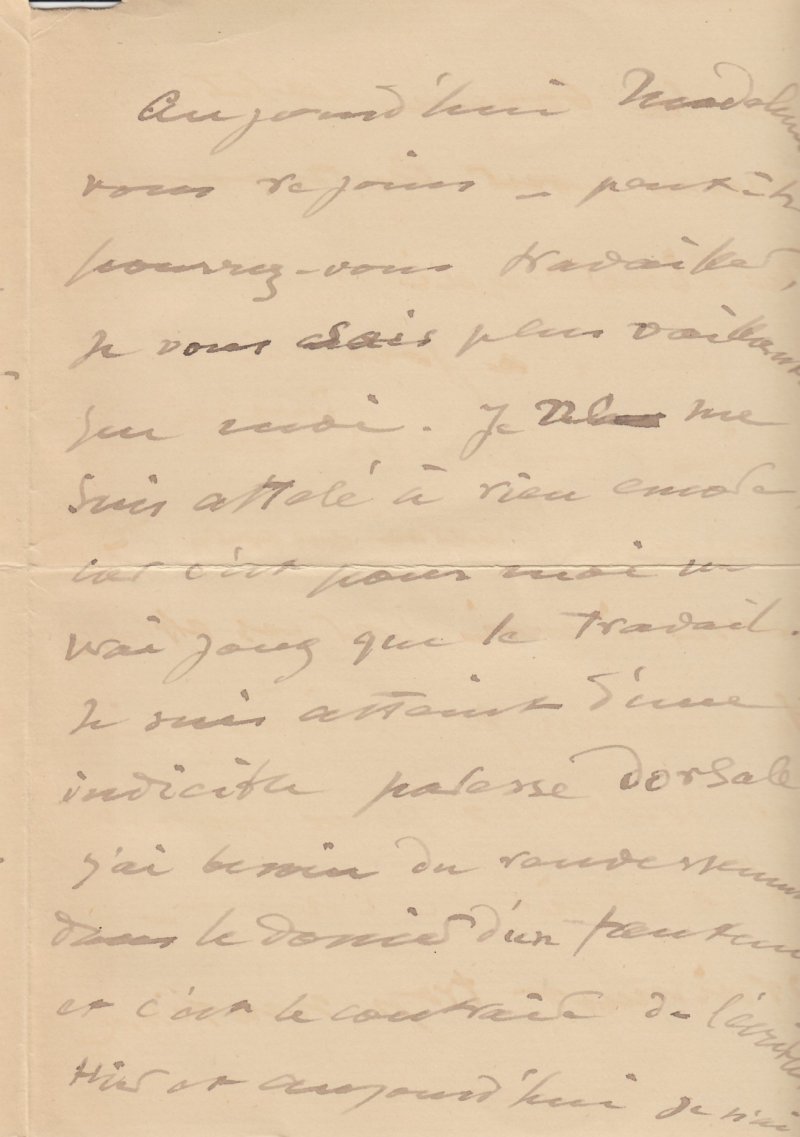 Aujourd'hui Madeleine
vous rejoins – peut-être
pourrez-vous travailler,
Je vous sais plus vaillante
que moi. Je ne me
suis attelé à rien encore
car c'est pour moi un
vrai joug que le travail.
Je suis atteint d'une
indicible paresse dorsale
j'ai besoin du
dans le dossier d'un fauteuil
et c'est le contraire de
Hier et aujourd'hui je n'ai